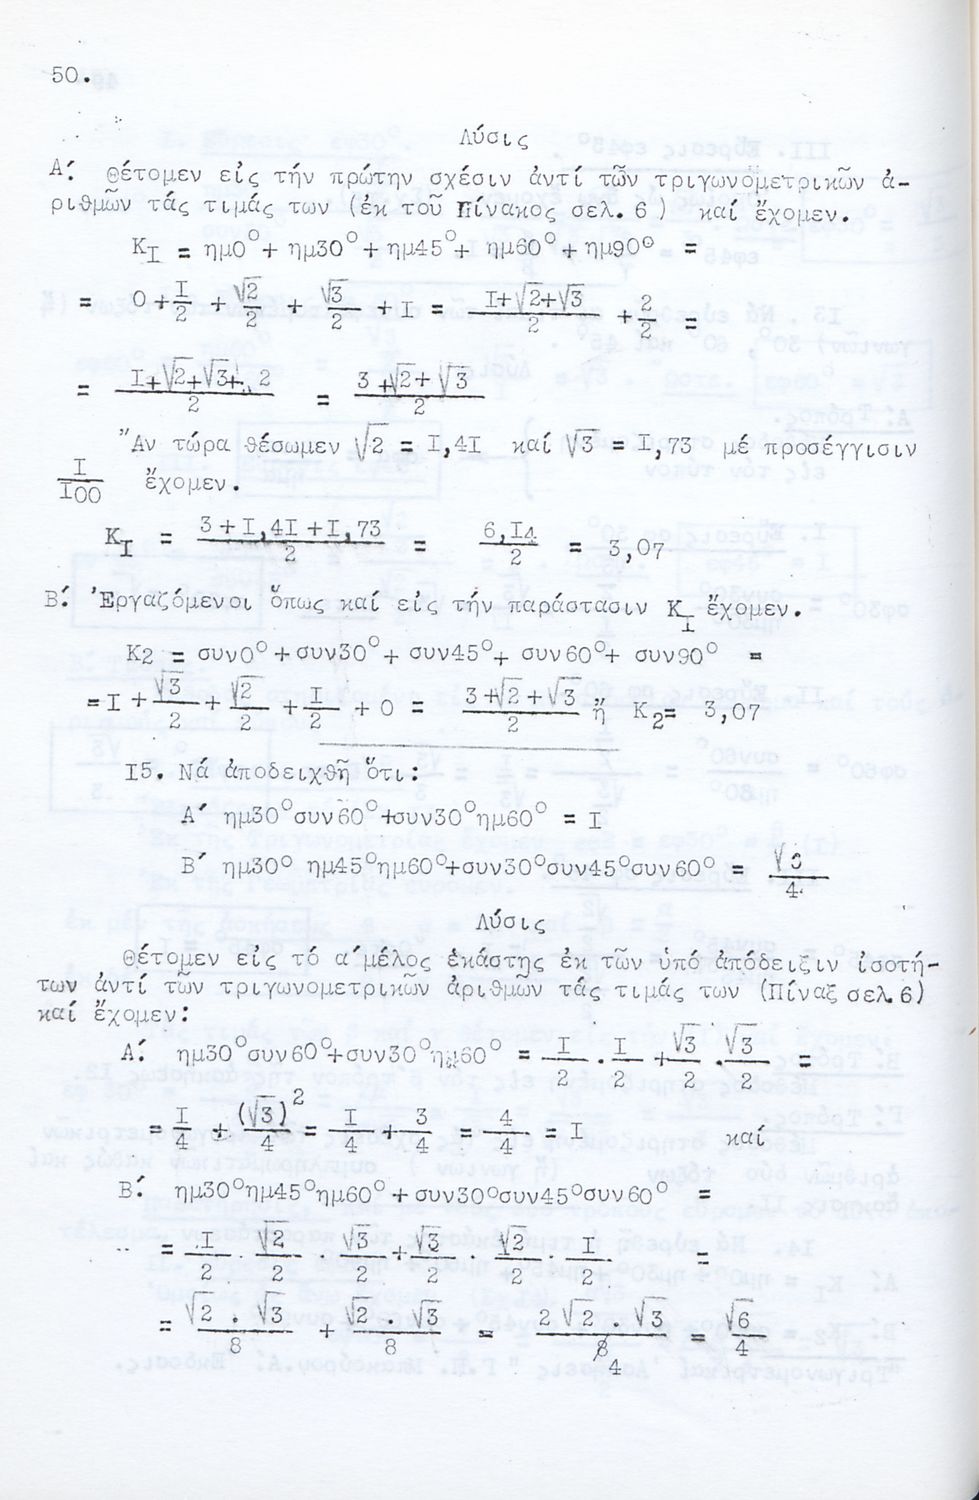 50.
Λύσις
Α΄. Θέτομεν εἰς τήν πρώτην σχέσιν ἀντί τῶν τριγωνομετρικῶν ἀ-
ριθμῶν τάς τιμάς των (ἐκ τοῦ Πίνακος σελ. 6 ) καί ἔχομεν.
K_I = ημ0° + ημ30° + ημ45° + ημ60° + ημ90° =
= 0 + I/2 + √2/2 + √3/2 + I = (I+√2+√3)/2 + 2/2 =
= (I+√2+√3+2)/2 = (3+√2+√3)/2
Ἄν τώρα θέσωμεν √2 = I,4I καί √3 = I,73 μέ προσέγγισιν
I/I00 ἔχομεν.
K_I = (3+I,4I+I,73)/2 = 6,I4/2 = 3,07
Β΄. Ἐργαζόμενοι ὅπως καί εἰς τήν παράστασιν K_I ἔχομεν.
K2 = συν0° + συν30° + συν45° + συν60° + συν90° =
= I + √3/2 + √2/2 + I/2 + 0 = (3+√2+√3)/2 ἤ K2 = 3,07
I5. Νά ἀποδειχθῆ ὅτι:
Α΄ ημ30°συν60°+συν30°ημ60° = I
Β΄ ημ30° ημ45°ημ60°+συν30°συν45°συν60° = √6/4
Λύσις
Θέτομεν εἰς τό α΄μέλος ἑκάστης ἐκ τῶν ὑπό ἀπόδειξιν ἰσοτή-
των ἀντί τῶν τριγωνομετρικῶν ἀριθμῶν τάς τιμάς των (Πίναξ σελ.6)
καί ἔχομεν:
Α΄. ημ30°συν60°+συν30°ημ60° = I/2 . I/2 + √3/2 . √3/2 =
= I/4 + (√3)²/4 = I/4 + 3/4 = 4/4 = I καί
Β΄. ημ30°ημ45°ημ60° + συν30°συν45°συν60° =
= I/2 . √2/2 . √3/2 + √3/2 . √2/2 . I/2 =
= √2 . √3/8 + √2 . √3/8 = 2√2 . √3/8 4 = √6/4